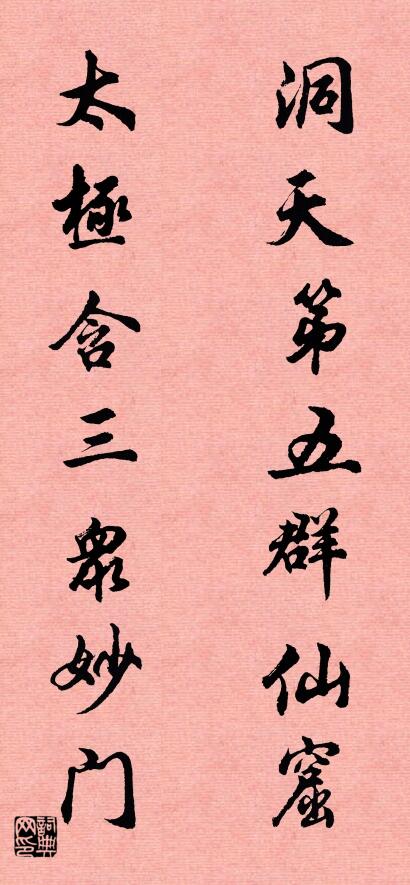 洞天第五群仙窟
太極含三衆妙门
詞典网印